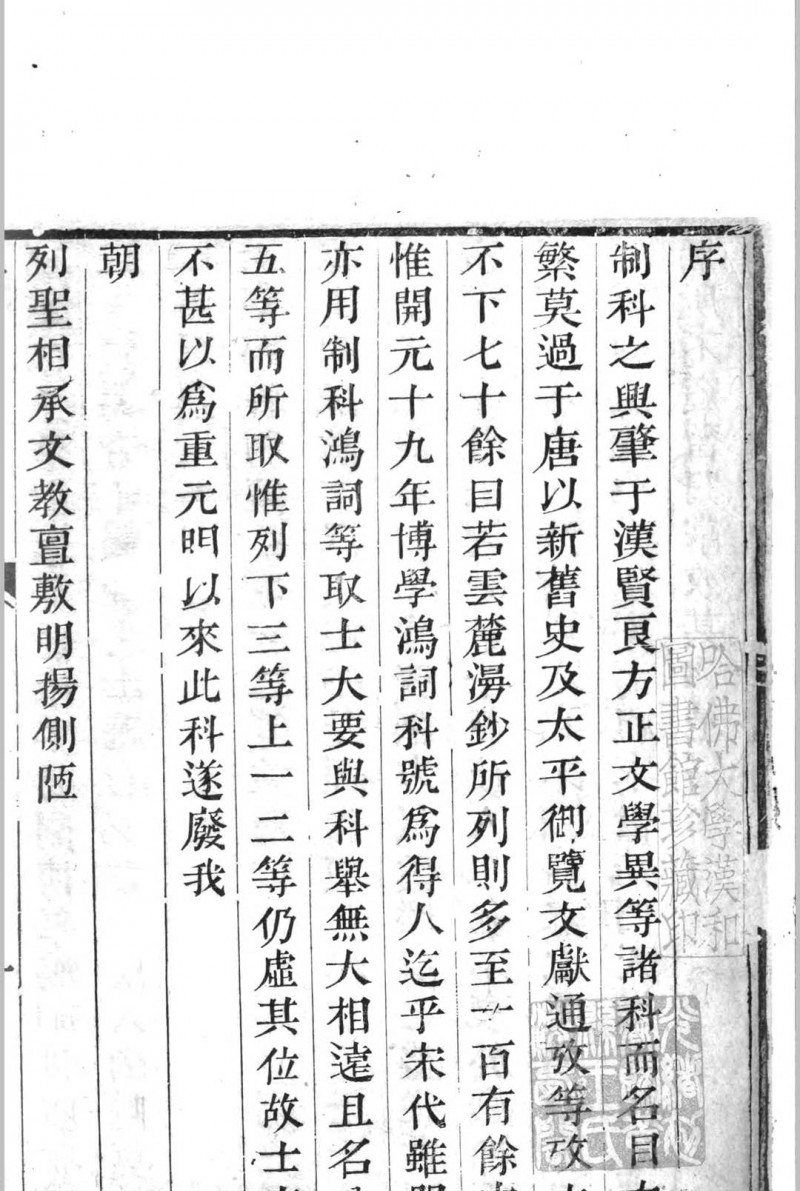 序
制科之興肇于漢賢良方正文學異等諸科而名目
繁莫過于唐以新舊史及太平御覽文獻通攷等攷
不下七十餘目若雲麓漫鈔所列則多至一百有餘
惟開元十九年博學鴻詞科號爲得人迄乎宋代雖
亦用制科鴻詞等取士大要與科舉無大相遠且名
五等而所取惟列下三等上一二等仍虛其位故士
不甚以爲重元明以來此科遂廢我
朝
列聖相承文教亶敷明揚側陋
哈佛大學漢和
圖書館珍藏印